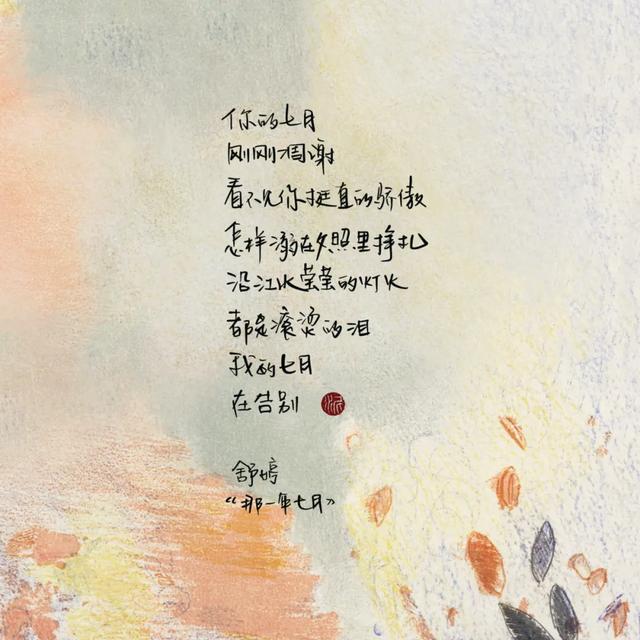 你的七月
刚刚凋谢
看不见你挺直的骄傲
怎样溺在夕照里挣扎
沿江水莹莹的灯火
都是滚烫的泪
我的七月
在告别
舒婷
“那一年七月”